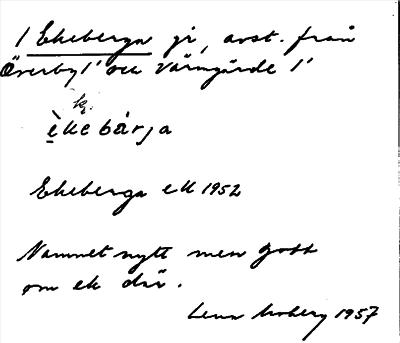 1 Ekeberga gd, avst. från
Överby 1' och Värmgärde 1'
k.
èkebárja
Ekeberga ek 1952
Namnet nytt men gott
om ek där.
Lena Moberg 1957